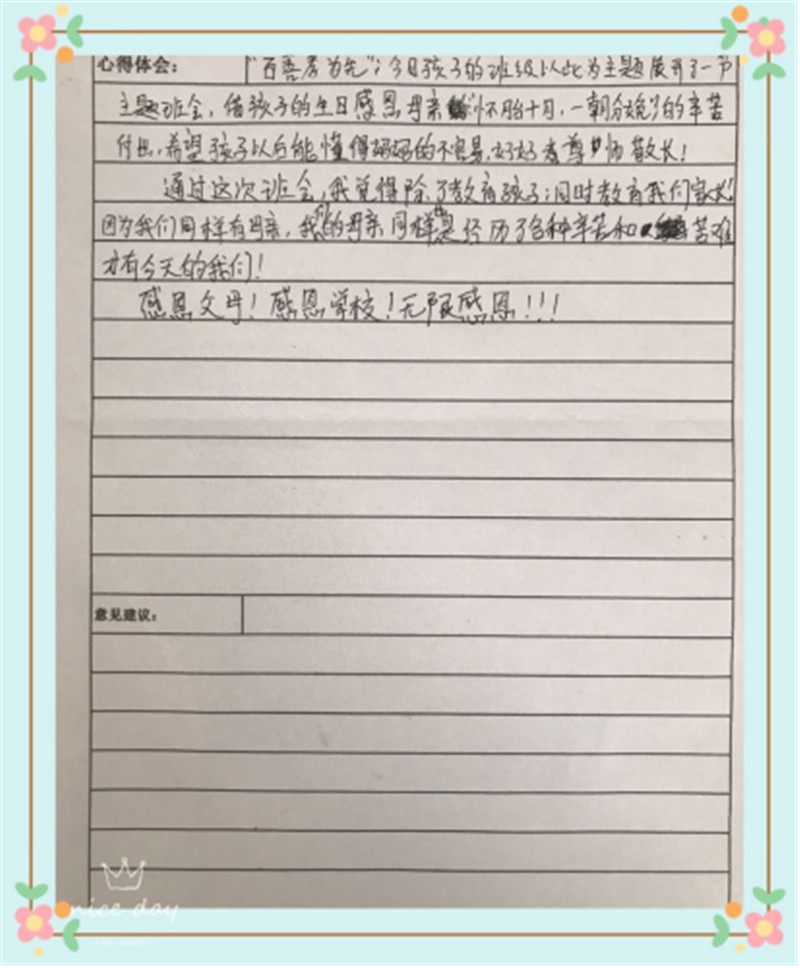 心得体会: "百善孝为先";今日孩子的班级以此为主题展开了一节
主题班会,借孩子的生日感恩母亲"怀胎十月,一朝分娩"的辛苦
付出,希望孩子以后能懂得妈妈的不容易,好好孝尊师敬长!
通过这次班会,我觉得除了教育孩子;同时教育我们家长!
因为我们同样有母亲,我们的母亲同样是经历了各种辛苦和苦难
才有今天的我们!
感恩父母!感恩学校!无限感恩!!!
意见建议:
nice day